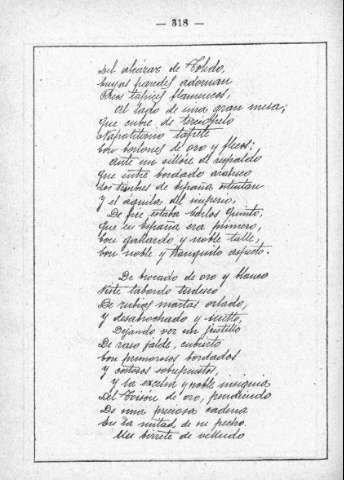 — 318 —
Del alcázar de Toledo,
Cuyas paredes adornan
Ricos tapices flamencos,
Al lado de una gran mesa,
Que cubre de terciopelo
Napolitano tapete
Con borlones de oro y flecos;
Ante un sillón de respaldo
Que entre bordado arabesco
Los timbres de España ostentan
Y el águila del imperio,
De pie estaba Carlos Quinto,
Que en España era primero,
Con gallardo y noble talle,
Con noble y tranquilo aspecto.
De brocado de oro y blanco
Viste tabardo tudesco
De rubias martas orlado,
Y desabrochado y suelto,
Dejando ver un justillo
De raso jalde, cubierto
Con primorosos bordados
Y costosos sobrepuestos,
Y la excelsa y noble insignia
Del Toisón de oro, pendiendo
De una preciosa cadena
En la mitad de su pecho.
Un birrete de velludo